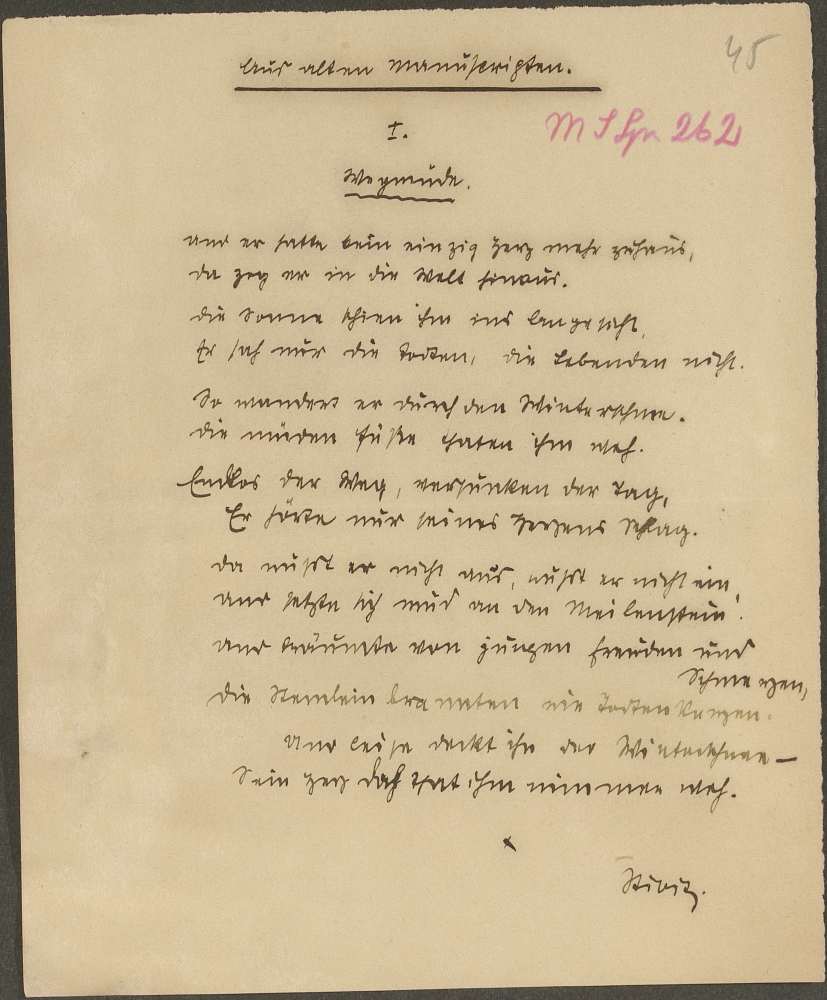 45
Aus alten Manuscripten.
I.
M S Spr 262
Wegmüde.
Und er hatte kein einzig Herz mehr zuhaus,
Da zog er in die Welt hinaus.
Die Sonne schien ihm ins Angesicht,
Er sah nur die Todten, die Lebenden nicht.
So wandert er durch den Winterschnee.
Die müden Füße thaten ihm weh.
Endlos der Weg, versunken der Tag,
Er hörte nur seines Herzens Schlag.
Da wußt er nicht aus, wußt er nicht ein,
Und setzte sich müd an den Meilenstein.
Und träumte von jungen Freuden und
Schmerzen,
Die Sternlein brannten wie Todtenkerzen.
Und leise deckt ihn der Winterschnee –
Sein Herz das that ihm nimmer weh.
x